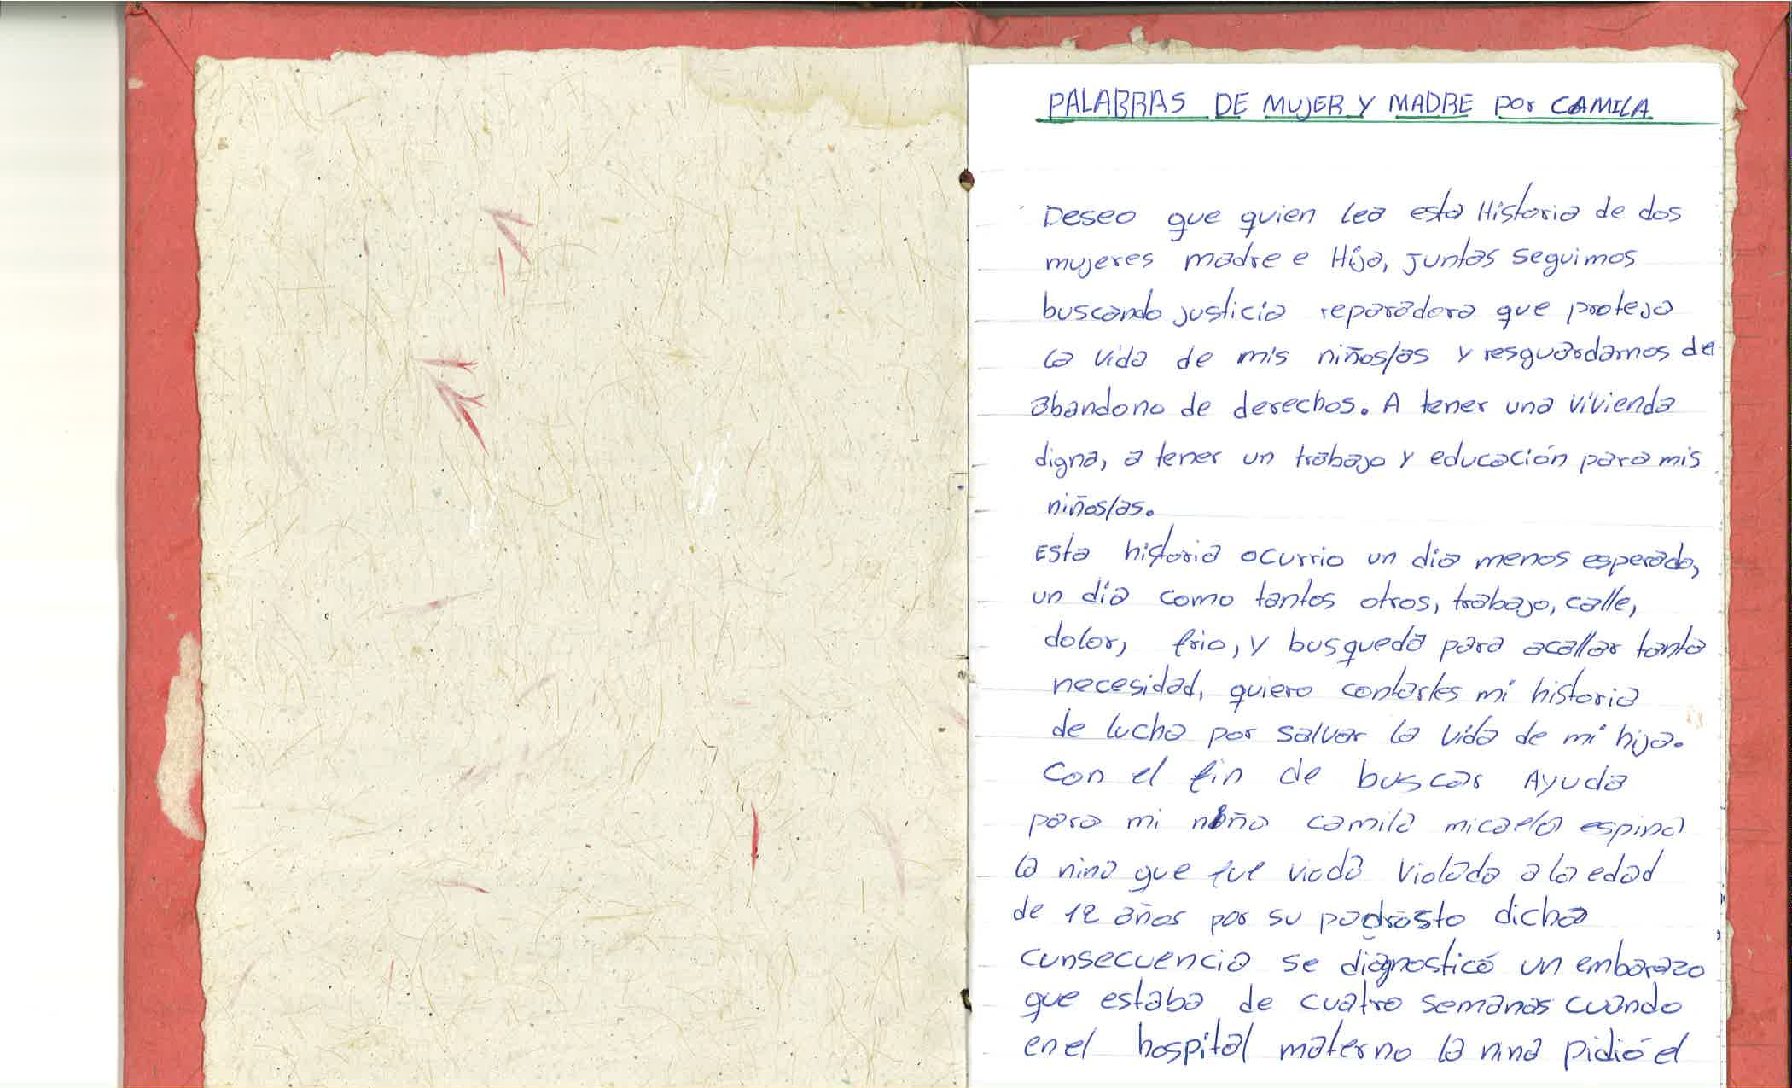 PALABRAS DE MUJER Y MADRE Por CAMILA
Deseo que quien lea esta Historia de dos
mujeres madre e Hija, juntas seguimos
buscando justicia reparadora que proteja
la vida de mis niños/as y resguardarnos de
abandono de derechos. A tener una vivienda
digna, a tener un trabajo y educación para mis
niños/as.
Esta historia ocurrio un dia menos esperado,
un día como tantos otros, trabajo, calle,
dolor, frio, y busqueda para acallar tanta
necesidad, quiero contarles mi historia
de lucha por salvar la vida de mi hija.
Con el fin de buscar Ayuda
para mi niña camila micaela espina
la nina que fue Violada a la edad
de 12 años por su padrasto dicha
cunsecuencia se diagnosticó un embarazo
que estaba de cuatro semanas cuando
en el hospital materno la nina pidió el